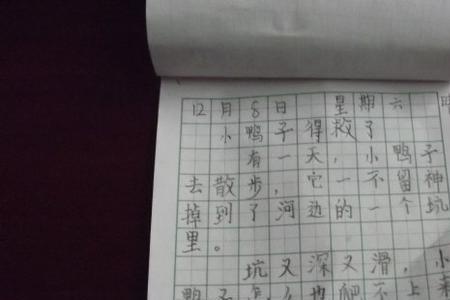 12月8日 星期六
小鸭子得救了
有一天，小鸭子
去散步，它一不留神
掉到了河边的一个坑
里。
坑又深又滑，小
鸭子怎么也爬不上来